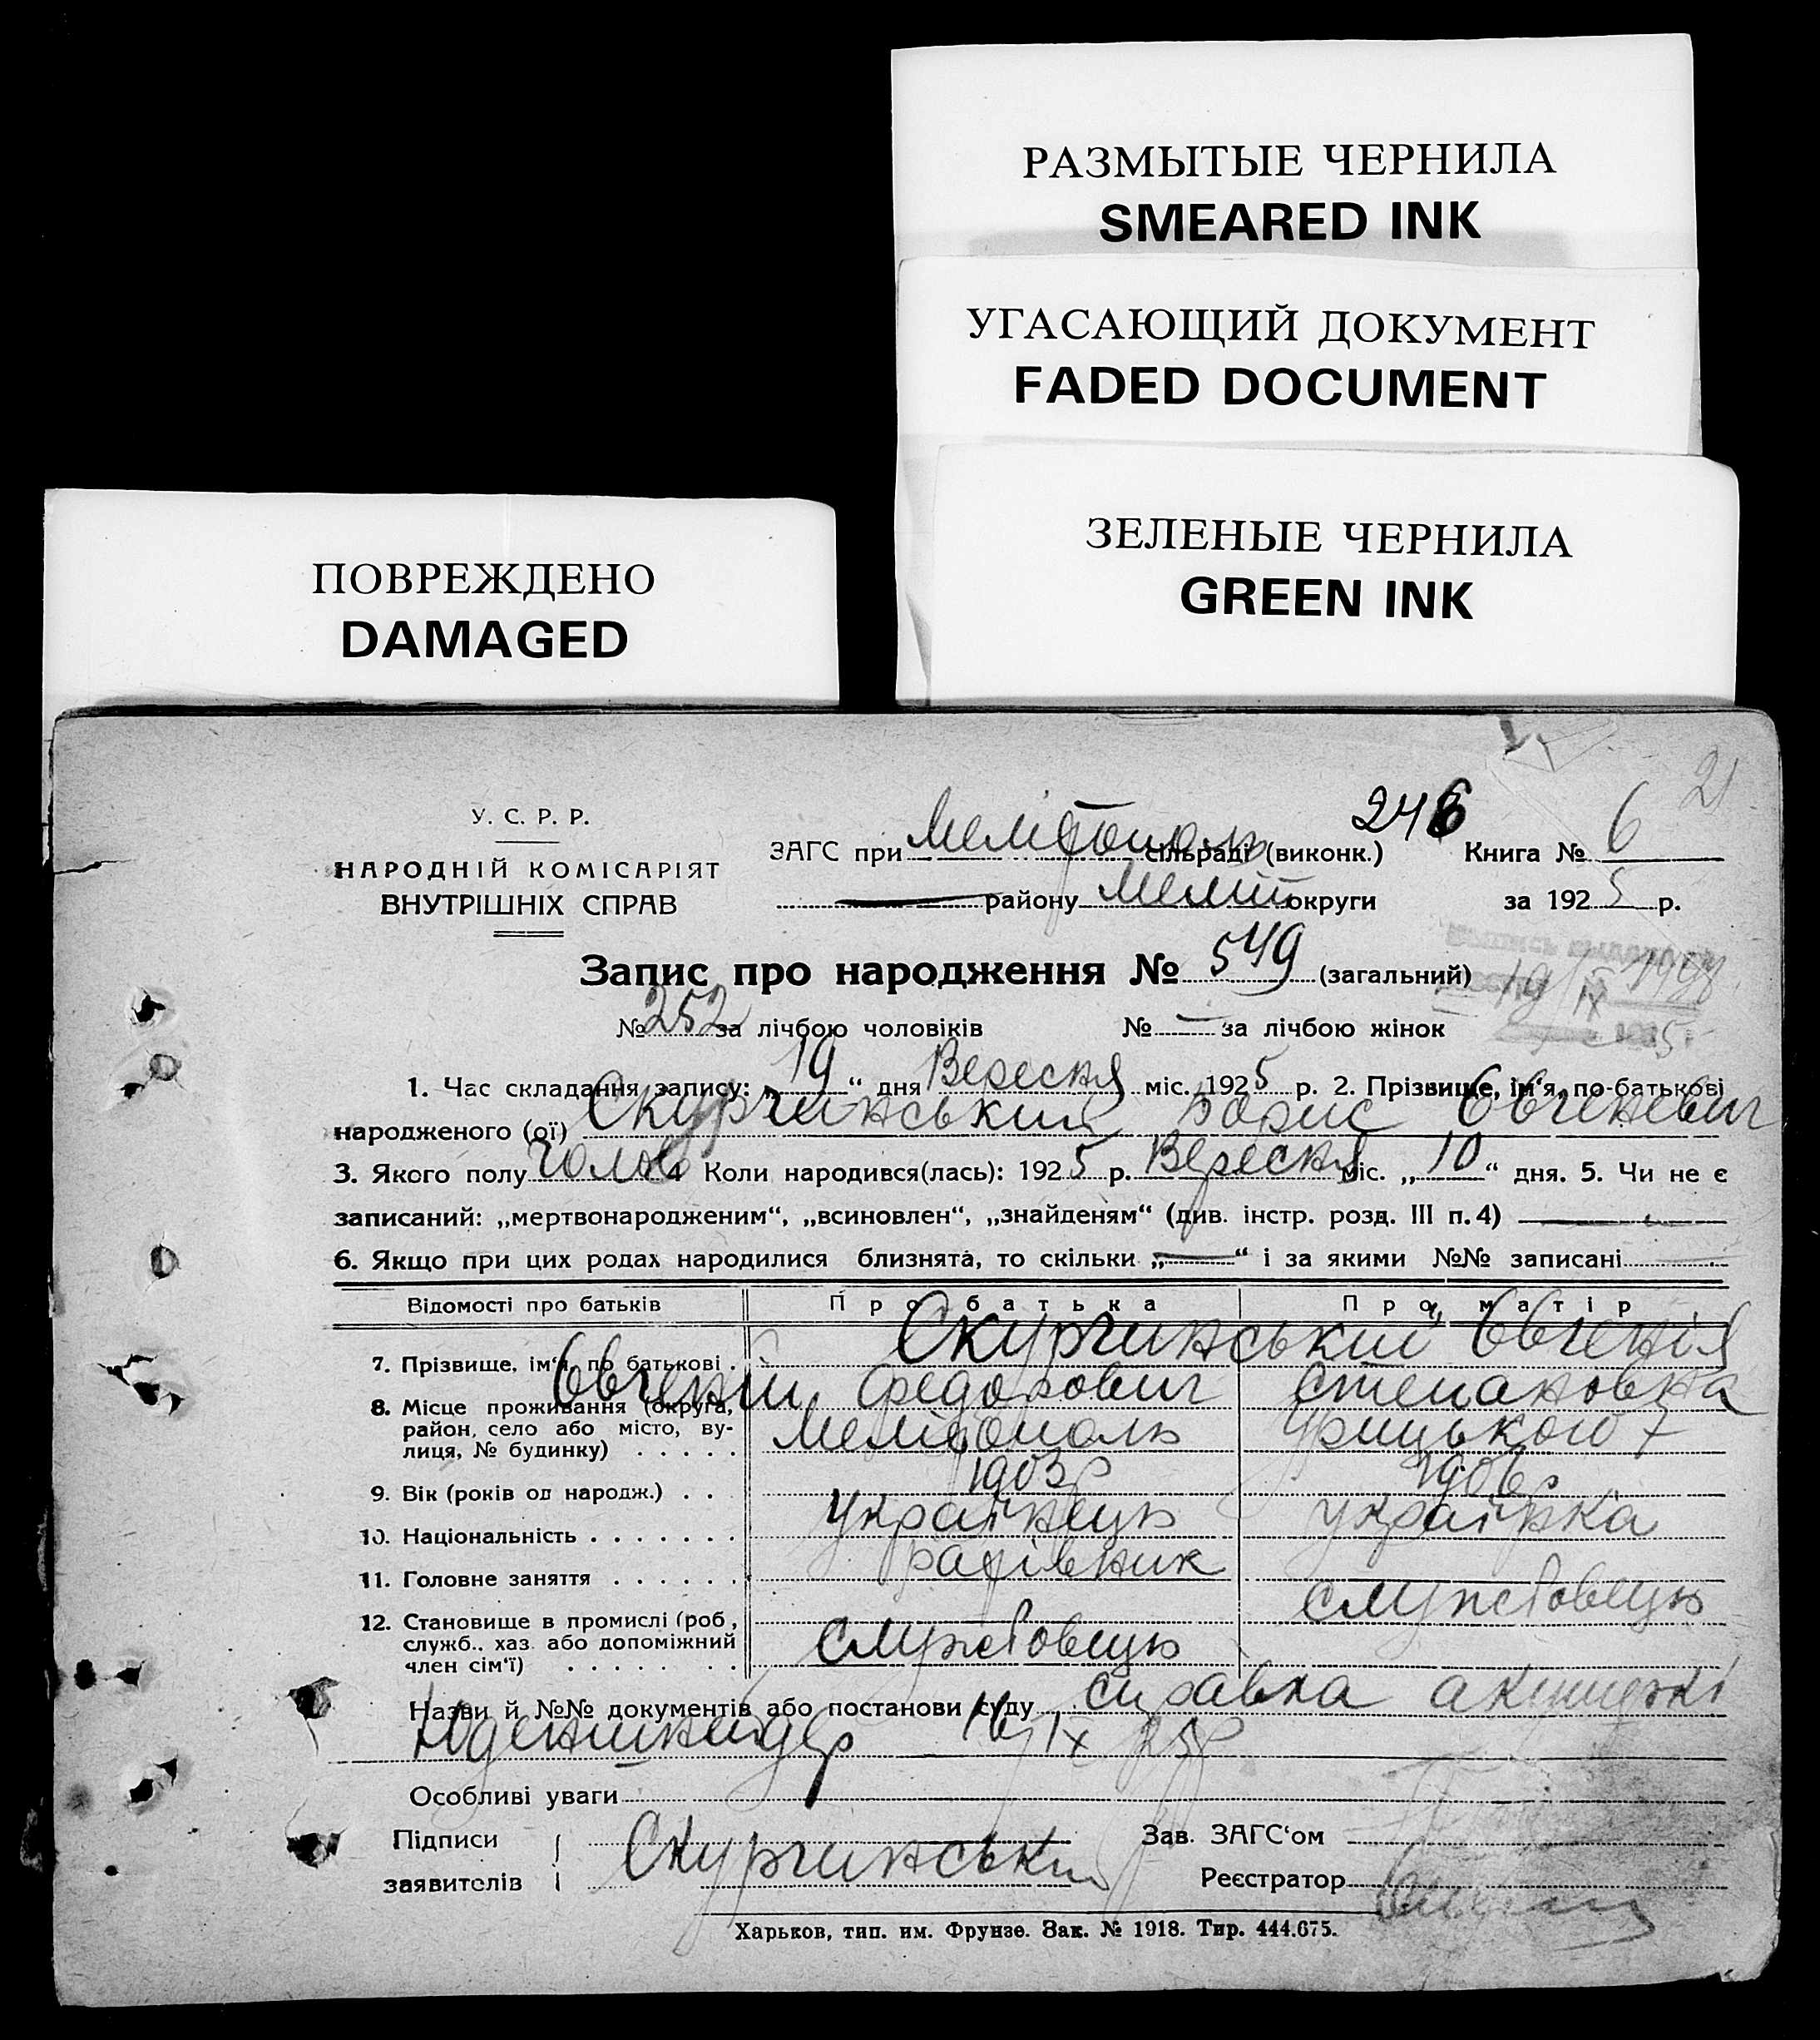 РАЗМЫТЫЕ ЧЕРНИЛА
SMEARED INK
УГАСАЮЩИЙ ДОКУМЕНТ
FADED DOCUMENT
ЗЕЛЕНЫЕ ЧЕРНИЛА
GREEN INK
ПОВРЕЖДЕНО
DAMAGED
21
246
У. С. Р. Р.
НАРОДНІЙ КОМІСАРІЯТ
ВНУТРІШНІХ СПРАВ
ЗАГС при Мелітополь сільраді (виконк.) Книга № 6
району Меліт округи за 1925 р.
Запис про народження № 549 (загальний)
19/IX
№ 252 за лічбою чоловіків № — за лічбою жінок
1. Час складання запису: „19“ дня Вересня міс. 1925 р. 2. Прізвище, ім'я, по-батькові
народженого (ої) Скургинський Борис Євгенович
3. Якого полу чолов 4 Коли народився(лась): 1925 р. Вересня міс. „10“ дня. 5. Чи не є
записаний: „мертвонародженим“, „всиновлен“, „знайденям“ (див. інстр. розд. III п. 4) —
6. Якщо при цих родах народилися близнята, то скільки „—“ і за якими №№ записані
Відомості про батьків Про батька Про матір
7. Прізвище, ім'я, по батькові . Скургинський Євгенія
Євгеній Федорович Степановна
8. Місце проживання (округа, район, село або місто, вулиця, № будинку) . . . . . Мелітополь Урицького 7
9. Вік (років од народж.) . . 1903 р 1906 р
10. Національність . . . . . . . українець українка
11. Головне заняття . . . . . .
12. Становище в промислі (роб, служб., хаз. або допоміжний член сім'ї) . . . . . . . . службовець службовець
Назви й №№ документів або постанови суду справка акушерки
16/IX 25р
Особливі уваги
Підписи Скургинський Зав. ЗАГС'ом
заявителів Реєстратор
Харьков, тип. им. Фрунзе. Зак. № 1918. Тир. 444.675.